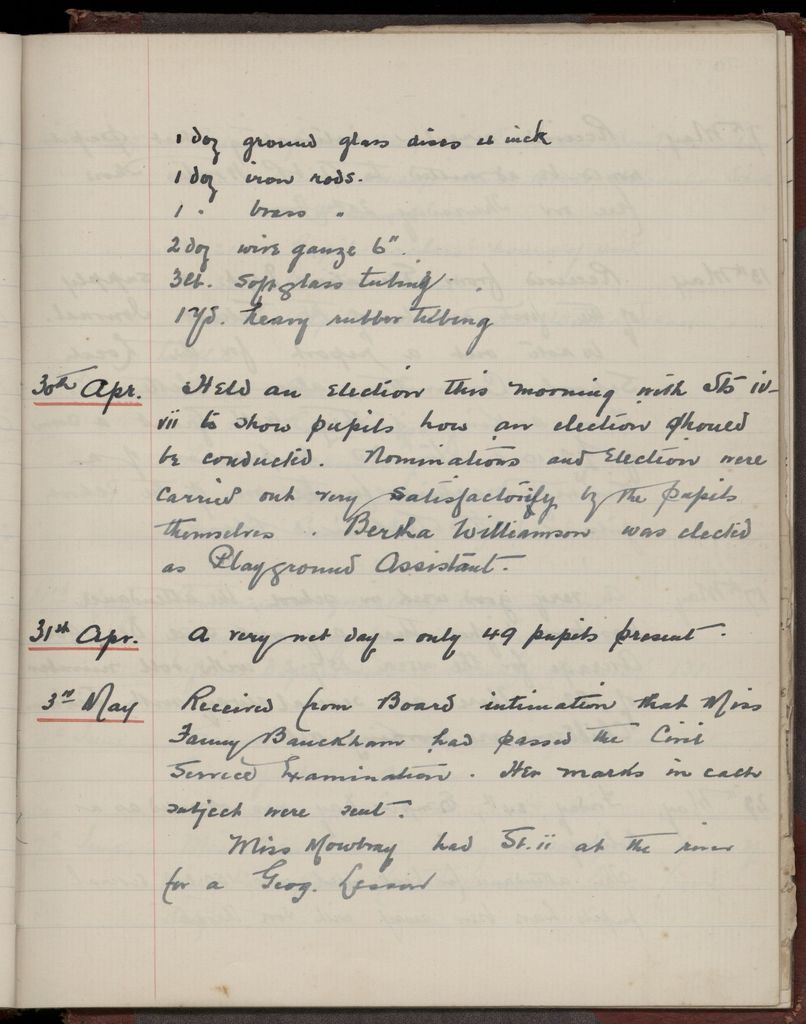 1 doz ground glass discs 4 inch
1 doz iron rods.
1 " brass "
2 doz wire gauze 6".
3lb. Soft glass tubing.
1 yd. heavy rubber tubing
30th Apr. Held an Election this morning with Sts iv-
vii to show pupils how an election should
be conducted. Nominations and Election were
carried out very satisfactorily by the pupils
themselves. Bertha Williamson was elected
as Playground Assistant.
31st Apr. A very wet day - only 49 pupils present.
3rd May Received from Board intimation that Miss
Fanny Bauckham had passed the Civil
Service Examination. Her marks in each
subject were sent.
Miss Mowbray had St. ii at the river
for a Geog. Lesson